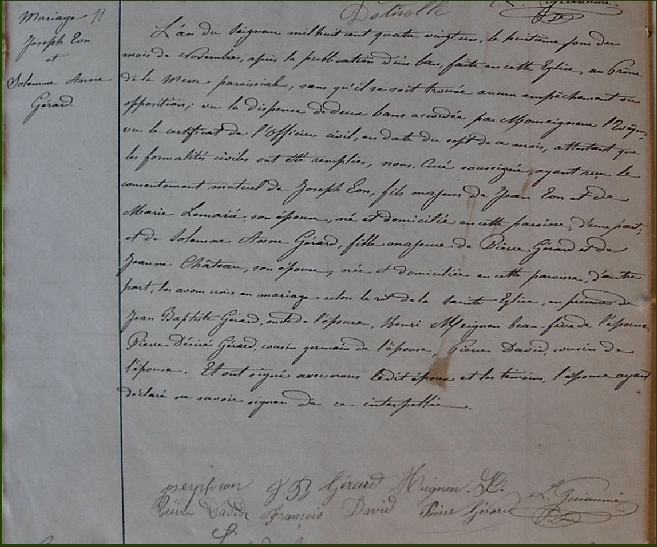 Détriolle L. Guiaumé
Mariage
Joseph Eon
et
Solemne Anne
Gérard
L'an du Seigneur mil huit cent quatre vingt un, le huitième jour du
mois de Novembre, après la publication d'un ban, faite en cette Eglise, au Prône
de la Messe paroissiale, sans qu'il se soit trouvé aucun empêchement ou
opposition; vu la dispense de deux bans accordée par Monseigneur l'Evêque,
vu le certificat de l'Officier civil, en date du sept de ce mois, attestant que
les formalités civiles ont été remplies, nous Curé soussigné, ayant reçu le
consentement mutuel de Joseph Eon, fils majeur de Jean Eon et de
Marie Lemarié, son épouse, né et domicilié en cette paroisse, d'une part;
et de Solemne Anne Gérard, fille majeure de Pierre Gérard et de
Jeanne Château, son épouse, née et domiciliée en cette paroisse, d'autre
part, les avons unis en mariage selon le rit de la Sainte Eglise, en présence de
Jean Baptiste Gérard, oncle de l'épouse, Henri Meignen beau-frère de l'épouse,
Pierre Désiré Gérard, cousin germain de l'épouse, Pierre David, cousin de
l'épouse. Et ont signé avec nous ledit époux et les témoins, l'épouse ayant
déclaré ne savoir signer de ce interpellée.
joseph eon J B Gérard Meignen
Pierre David François David Pierre Gérard L. Guiaumé